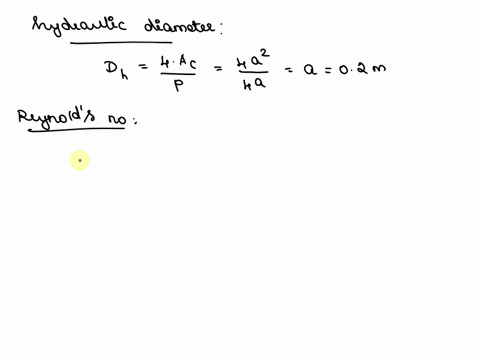 hydraulic diameter:
D_h = 4.A_C / P = 4a² / 4a = a = 0.2 m
Reynold's no: